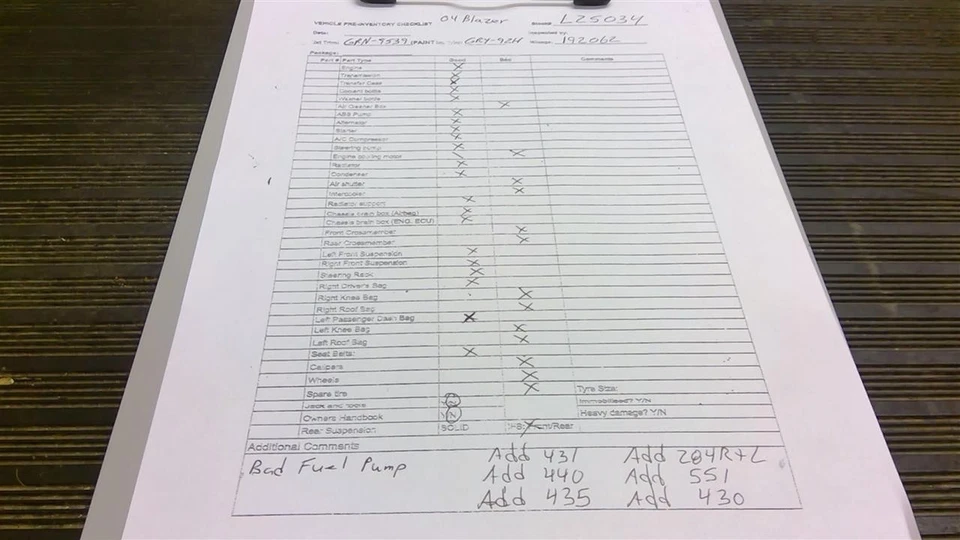 VEHICLE PRE-INVENTORY CHECKLIST 04 Blazer Stock# L25034
Date: Inspected by:
Int Trim: GRN-9539 (PAINT GRY-92H Mileage: 192062
Package:
Part # Part Type Good Bad Comments
Engine X
Transmission X
Transfer Case X
Coolant bottle X
Washer bottle X
Air Cleaner Box X
ABS Pump X
Alternator X
Starter X
A/C Compressor X
Steering pump X
Engine cooling motor X
Radiator X
Condenser X
Air shutter X
Intercooler X
Radiator support X
Chassis brain box (Airbag) X
Chassis brain box (ENG. ECU) X
Front Crossmember X
Rear Crossmember X
Left Front Suspension X
Right Front Suspension X
Steering Rack X
Right Drivers Bag X
Right Knee Bag X
Right Roof Bag X
Left Passenger Dash Bag X
Left Knee Bag X
Left Roof Bag X
Seat Belts: X
Calipers X
Wheels X
Spare tire X Tyre Size:
Jack and tools Immobilised? Y/N
Owners Handbook Y/N Heavy damage? Y/N
Rear Suspension SOLID
Additional Comments
Bad Fuel Pump Add 431 Add 204R+L
Add 440 Add 551
Add 435 Add 430